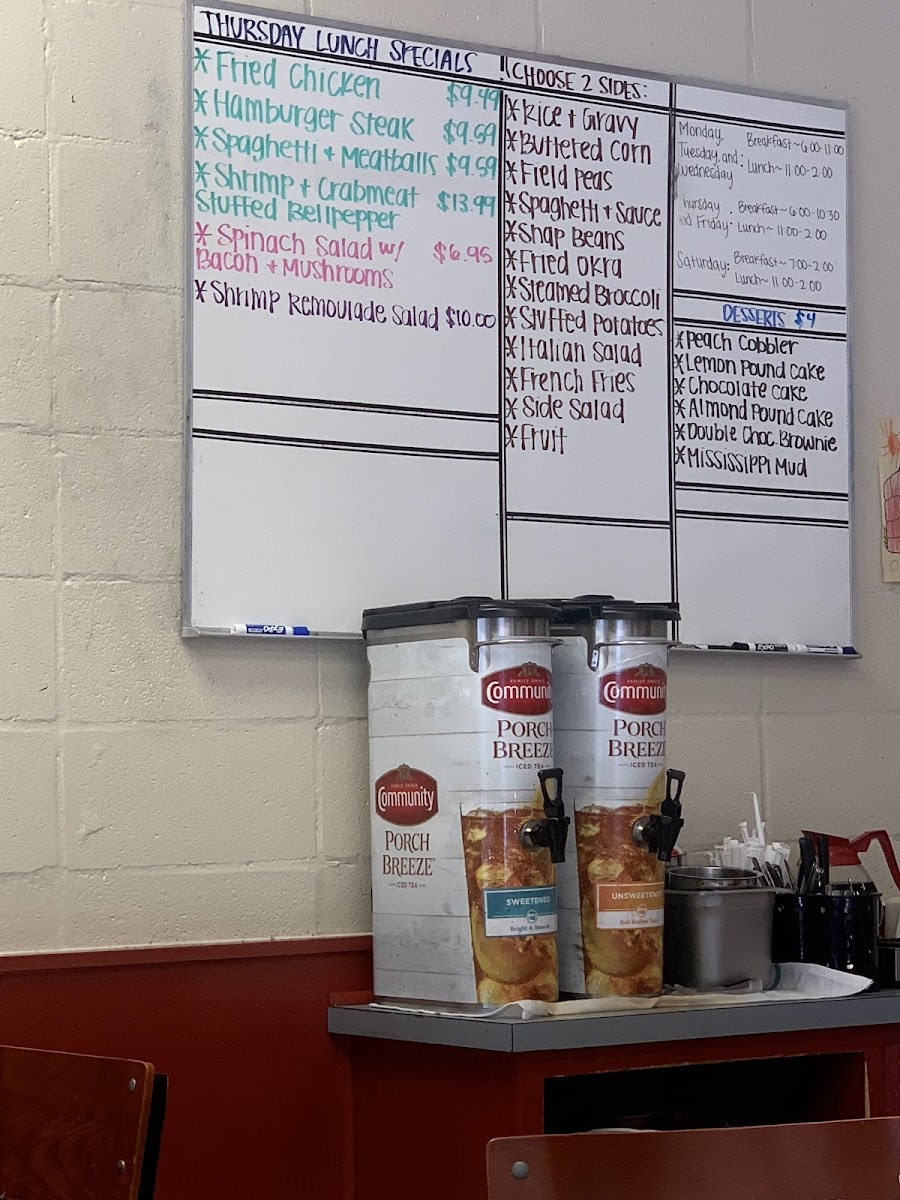 THURSDAY LUNCH SPECIALS !!
* Fried Chicken $9.49
* Hamburger Steak $9.59
* Spaghetti + Meatballs $9.59
* Shrimp + Crabmeat $13.99
Stuffed Bellpepper
* Spinach Salad w/ $6.95
Bacon + Mushrooms
* Shrimp Remoulade Salad $10.00
CHOOSE 2 SIDES:
* Rice + Gravy
* Buttered Corn
* Field Peas
* Spaghetti + Sauce
* Snap Beans
* Fried Okra
* Steamed Broccoli
* Stuffed Potatoes
* Italian Salad
* French Fries
* Side Salad
* Fruit
Monday, Breakfast~ 6:00-11:00
Tuesday, and :
Wednesday Lunch~ 11:00-2:00
Thursday : Breakfast~ 6:00-10:30
and Friday Lunch~ 11:00-2:00
Saturday: Breakfast~ 7:00-2:00
Lunch~ 11:00-2:00
DESSERTS $4
* Peach Cobbler
* Lemon Pound Cake
* Chocolate Cake
* Almond Pound Cake
* Double Choc. Brownie
* Mississippi Mud
EXPO
EXPO
FAMILY OWNED
Community
PORCH
BREEZE
ICED TEA
FAMILY OWNED
Communi
PORCH
BREEZE
ICED TEA
SWEETENED
Bright & Smooth
FAMILY OWNED
Commun
PORCH
BREEZE
ICED TEA
UNSWEETENED